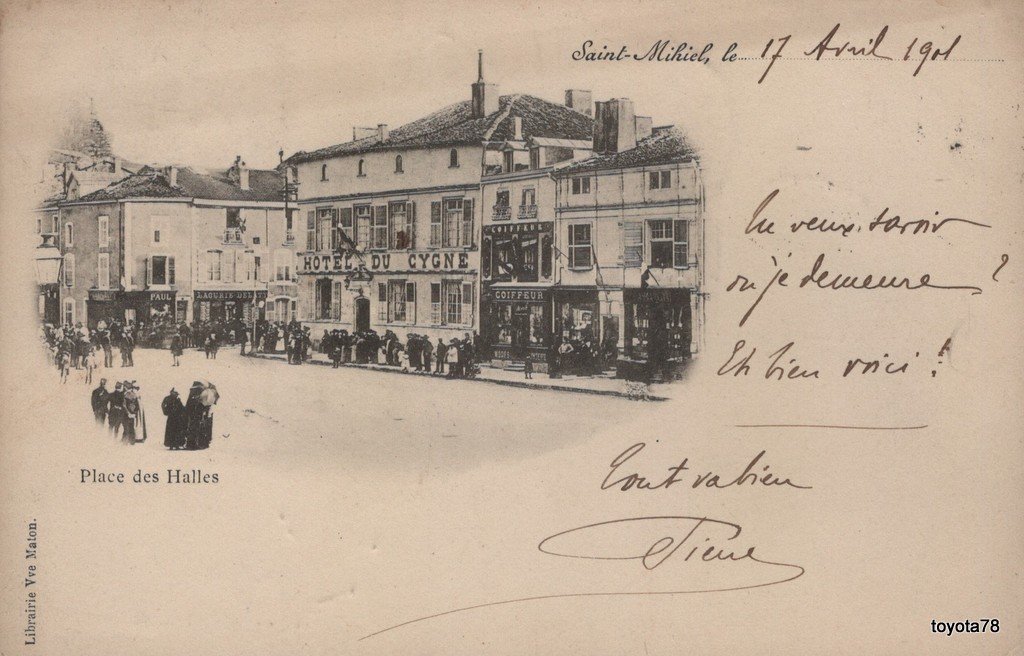 Saint-Mihiel, le 17 Avril 1901
Tu veux savoir
où je demeure ?
Eh bien voici !
Tout va bien
Pierre
HÔTEL DU CYGNE
COIFFEUR
COIFFEUR
PAUL
Place des Halles
Librairie Vve Malon.
toyota78